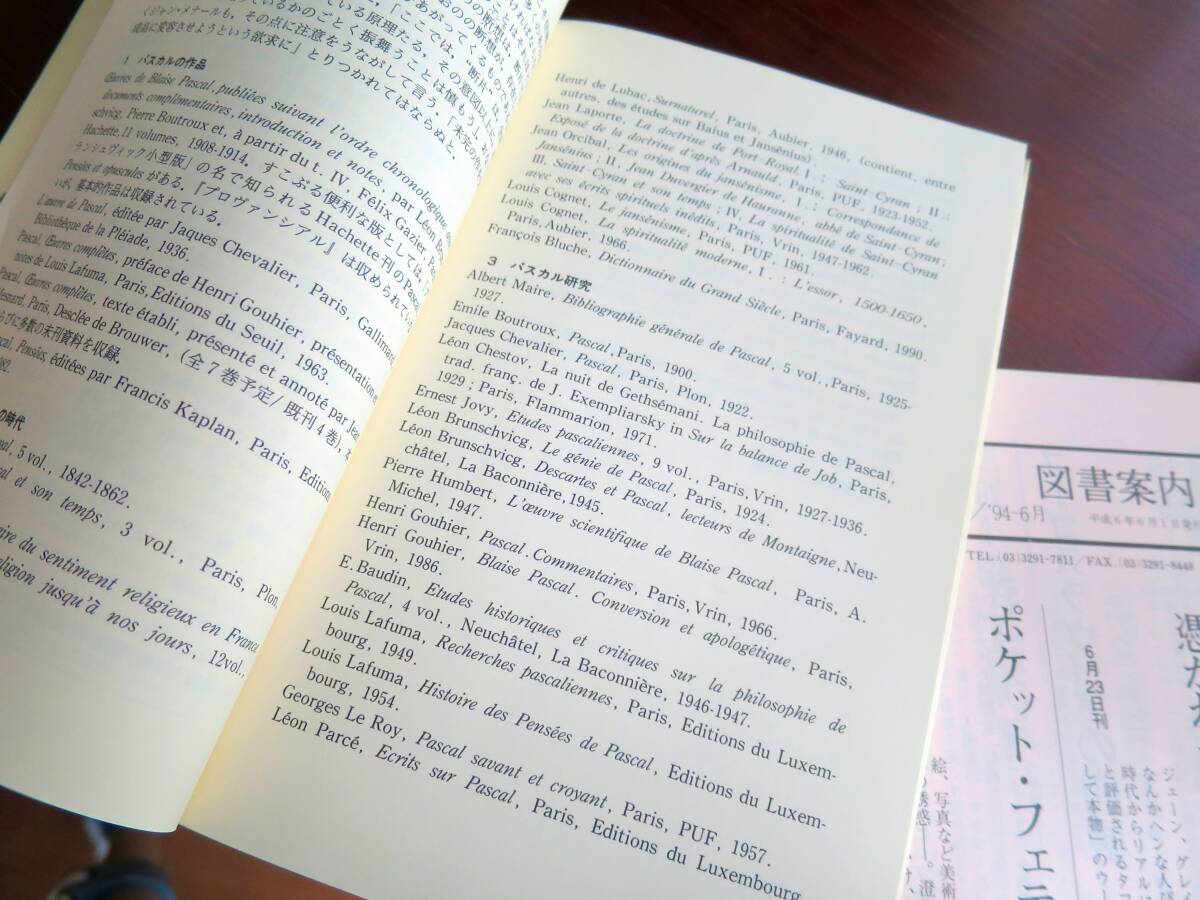 くジャン・メナールも，その点に注意をうながして言う．「未完の作
成品に変容させようという欲求に」とりつかれてはならぬと．
1 パスカルの作品
Œuvres de Blaise Pascal, publiées suivant l'ordre chronologique
documents complémentaires, introduction et notes, par Léon B
schvicg, Pierre Boutroux et, à partir du t. IV, Félix Gazier, Pa
Hachette, 11 volumes, 1908-1914. すこぶる便利な版としては，「
ランシュヴィック小型版」の名で知られる Hachette 刊の Pasca
Pensées et opuscules がある．『プロヴァンシアル』は収められてい
いが，基本的作品は収録されている．
L'œuvre de Pascal, éditée par Jaques Chevalier, Paris, Gallima
Bibliothèque de la Pléiade, 1936.
Pascal, Œuvres complètes, préface de Henri Gouhier, présentation e
notes de Louis Lafuma, Paris, Editions du Seuil, 1963.
Pascal, Œuvres complètes, texte établi, présenté et annoté par Jea
Mesnard, Paris, Desclée de Brouwer, (全7巻予定/既刊4巻),
らびに多数の未刊資料を収録．
cal, Pensées, éditées par Francis Kaplan, Paris, Edition
982.
の時代
al, 5 vol., 1842-1862.
al et son temps, 3 vol., Paris, Plon,
ire du sentiment religieux en France
ligion jusqu'à nos jours, 12vol.,
Henri de Lubac, Surnaturel, Paris, Aubier, 1946, (contient, entre
autres, des études sur Baïus et Jansénius).
Jean Laporte, La doctrine de Port-Royal, I. : Saint-Cyran ; II. :
Exposé de la doctrine d'après Arnauld, Paris, PUF, 1923-1952.
Jean Orcibal, Les origines du jansénisme, I. : Correspondance de
Jansénius ; II, Jean Duvergier de Hauranne, abbé de Saint-Cyran ;
III. Saint-Cyran et son temps ; IV. La spiritualité de Saint-Cyran
avec ses écrits spirituels inédits, Paris, Vrin, 1947-1962.
Louis Cognet, Le jansénisme, Paris, PUF, 1961.
Louis Cognet, La spiritualité moderne, I. : L'essor, 1500-1650,
Paris, Aubier, 1966.
François Bluche, Dictionnaire du Grand Siècle, Paris, Fayard, 1990.
3 パスカル研究
Albert Maire, Bibliographie générale de Pascal, 5 vol., Paris, 1925-
1927.
Emile Boutroux, Pascal, Paris, 1900.
Jacques Chevalier, Pascal, Paris, Plon, 1922.
Léon Chestov, La nuit de Gethsémani. La philosophie de Pascal,
trad. franç. de J. Exempliarsky in Sur la balance de Job, Paris,
1929 ; Paris, Flammarion, 1971.
Ernest Jovy, Etudes pascaliennes, 9 vol., Paris, Vrin, 1927-1936.
Léon Brunschvicg, Le génie de Pascal, Paris, 1924.
Léon Brunschvicg, Descartes et Pascal, lecteurs de Montaigne, Neu-
châtel, La Baconnière, 1945.
Pierre Humbert, L'œuvre scientifique de Blaise Pascal, Paris, A.
Michel, 1947.
Henri Gouhier, Pascal. Commentaires, Paris, Vrin, 1966.
Henri Gouhier, Blaise Pascal. Conversion et apologétique, Paris,
Vrin, 1986.
E. Baudin, Etudes historiques et critiques sur la philosophie de
Pascal, 4 vol., Neuchâtel, La Baconnière, 1946-1947.
Louis Lafuma, Recherches pascaliennes, Paris, Editions du Luxem-
bourg, 1949.
Louis Lafuma, Histoire des Pensées de Pascal, Editions du Luxem-
bourg, 1954.
Georges Le Roy, Pascal savant et croyant, Paris, PUF, 1957.
Léon Parcé, Ecrits sur Pascal, Paris, Editions du Luxembourg
図書案内
／'94-6月
平成6年6月1日発
TEL.(03)3291-7811／FAX.(03)3291-8448
6月23日刊
ポケット・フェ
ジェーン、グレイ
なんかヘンな人び
時代からリアルに
と評価されるタフ
して本物」のウー
絵、写真など美術
誘惑――。澄